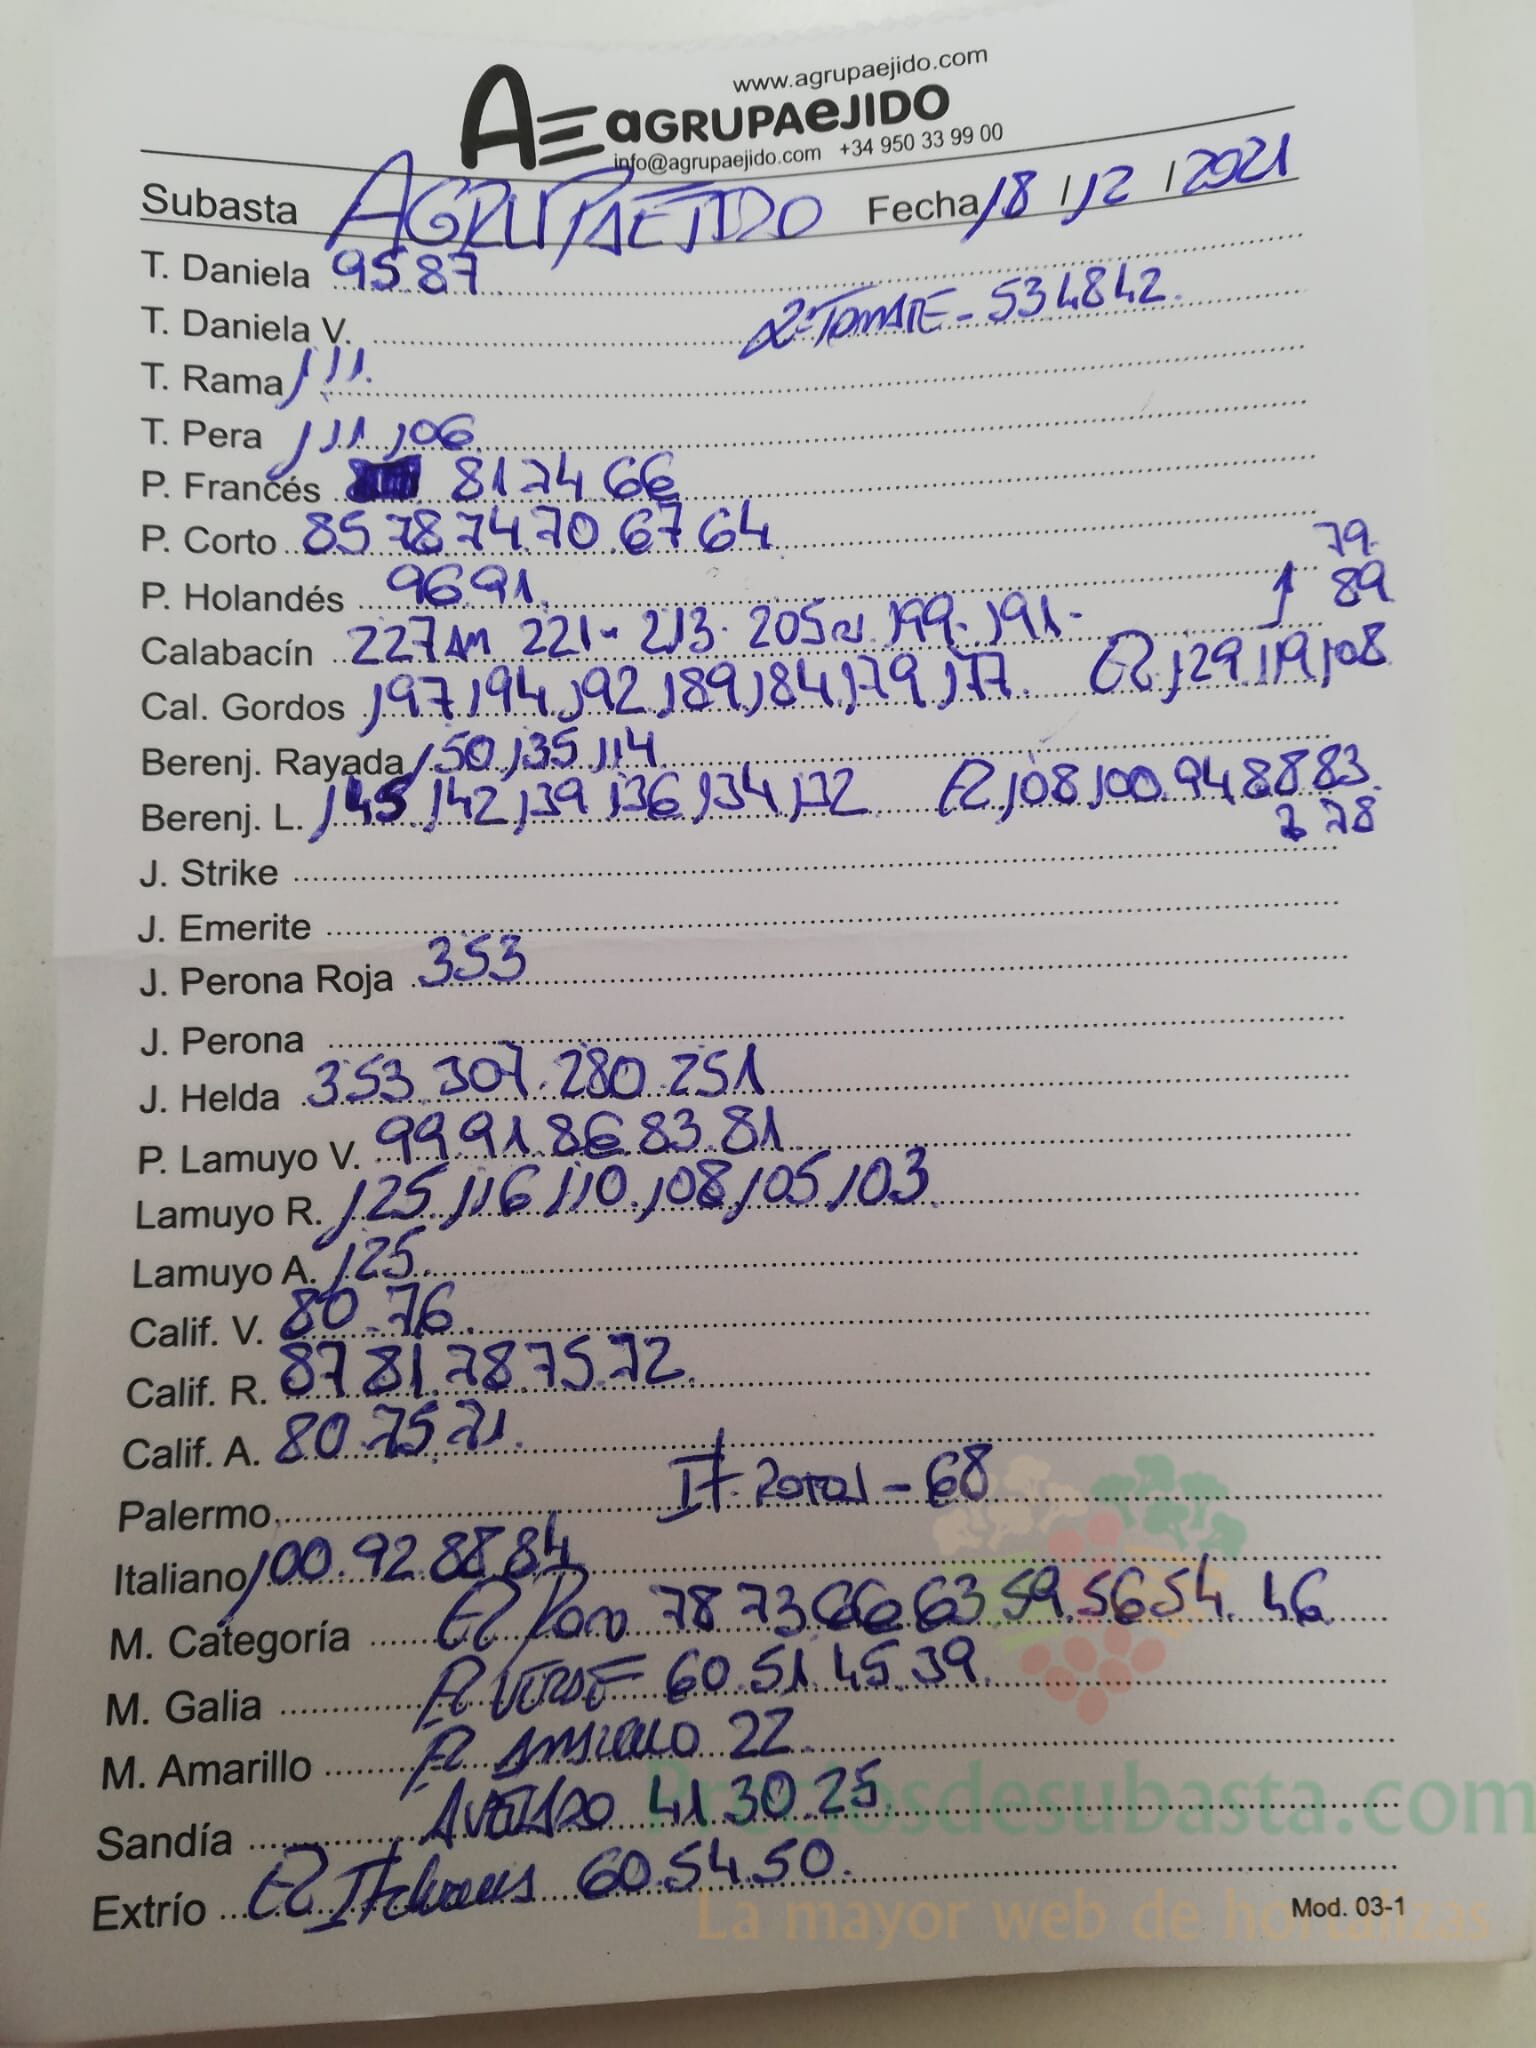 www.agrupaejido.com
AE aGRUPAeJIDO
info@agrupaejido.com +34 950 33 99 00
Subasta AGRUPAEJIDO Fecha 18/12/2021
T. Daniela 95.87
T. Daniela V. 2ª TOMATE - 53 48 42.
T. Rama 111.
T. Pera 111 106
P. Francés 81 74 66
P. Corto 85 78 74 70 67 64
79.
P. Holandés 96 91. 89
Calabacín 227 221 - 213 - 205 199 - 191 -
Cal. Gordos 197 194 192 189 184 179 177. R 129 119 108
Berenj. Rayada 150 135 114
Berenj. L. 145 142 139 136 134 132 R 108 100 94 88 83.
78
J. Strike
J. Emerite
J. Perona Roja 353
J. Perona
J. Helda 353 307. 280. 251
P. Lamuyo V. 99 91 86 83 81
Lamuyo R. 125 116 110. 108 105 103
Lamuyo A. 125.
Calif. V. 80. 76.
Calif. R. 87 81. 78 75 72.
Calif. A. 80. 75 71.
Palermo - 68
Italiano 100. 92 88 84
M. Categoría R 78 73 66 63 59. 56 54. 46
M. Galia R VERDE 60. 51. 45. 39.
M. Amarillo R AMARILLO 22.
Sandía 41 30 25.
Preciosdesubasta.com
Extrío R 60. 54. 50.
La mayor web de hortalizas
Mod. 03-1